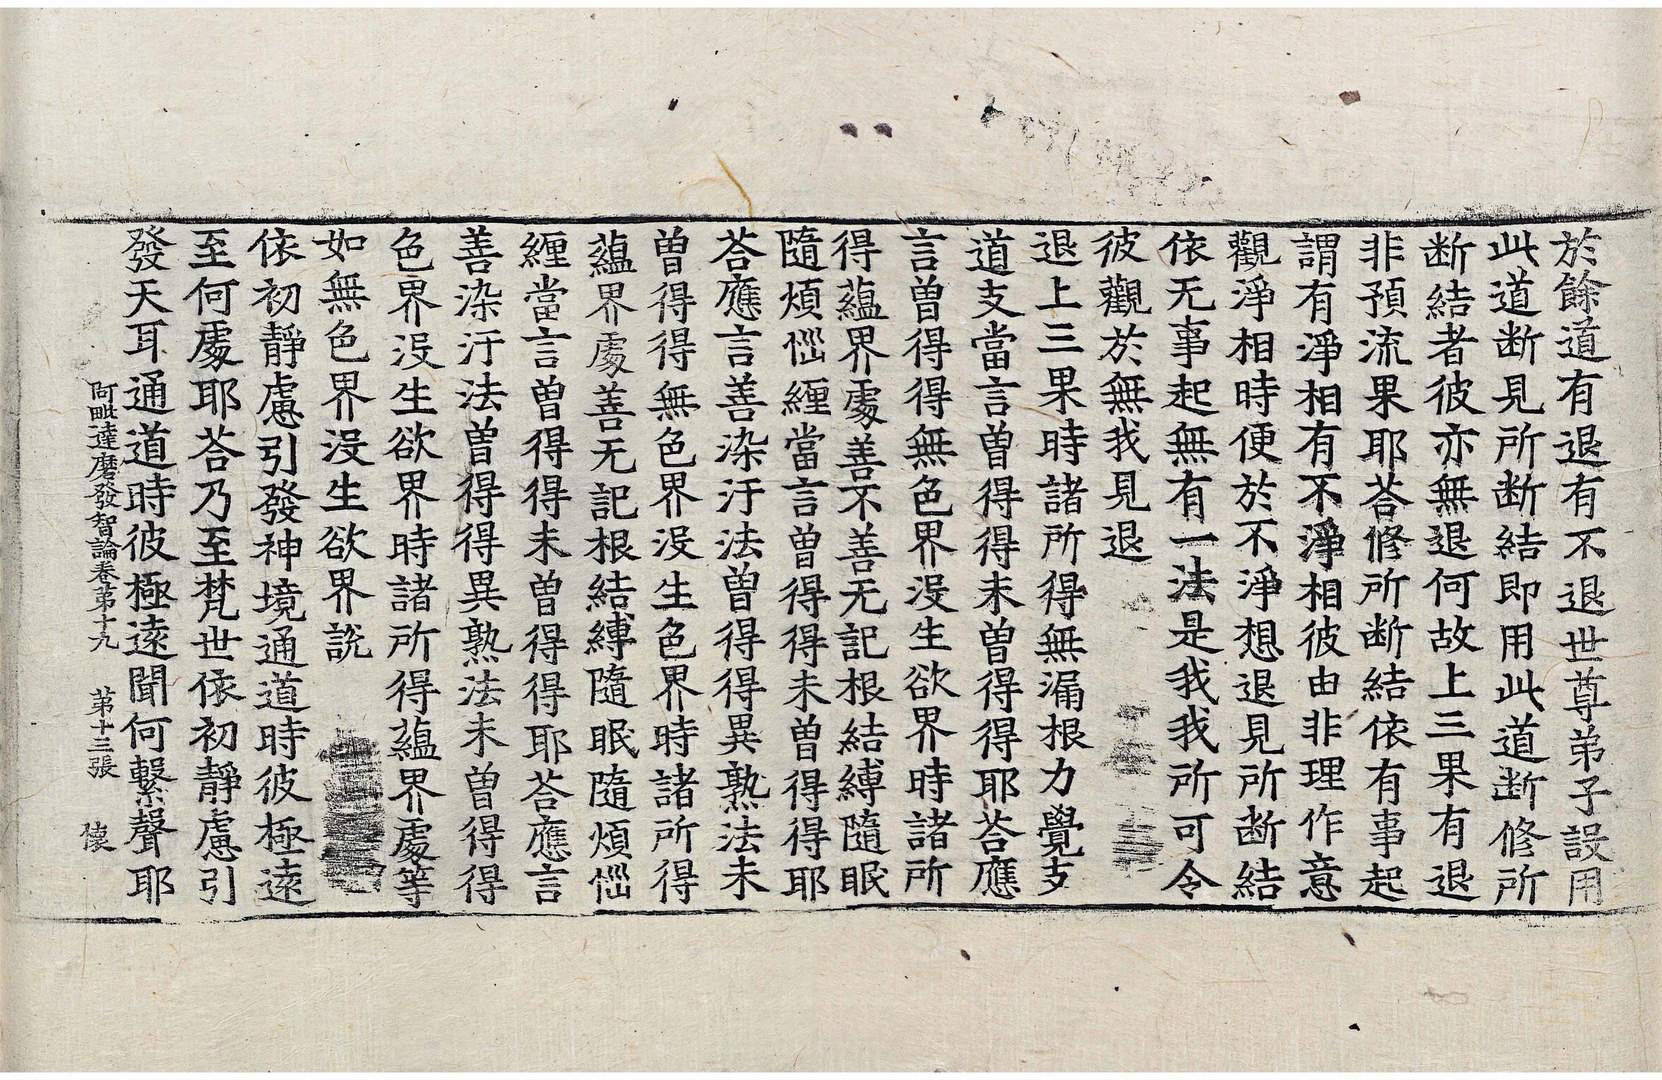 於餘道有退有不退世尊弟子設用
此道断見所断結即用此道断修所
断結者彼亦無退何故上三果有退
非預流果耶荅修所断結依有事起
謂有淨相有不淨相彼由非理作意
觀淨相時便於不淨想退見所断結
依无事起無有一法是我我所可令
彼觀於無我見退
退上三果時諸所得無漏根力覺支
道支當言曽得得未曽得得耶荅應
言曽得得無色界没生欲界時諸所
得蘊界處善不善无記根結縛隨眠
隨煩惱纏當言曽得得未曽得得耶
荅應言善染汙法曽得得異熟法未
曽得得無色界没生色界時諸所得
蘊界處善无記根結縛隨眠隨煩惱
纏當言曽得得未曽得得耶荅應言
善染汙法曽得得異熟法未曽得得
色界没生欲界時諸所得蘊界處等
如無色界没生欲界說
依初靜慮引發神境通道時彼極遠
至何處耶荅乃至梵世依初靜慮引
發天耳通道時彼極遠聞何繫聲耶
阿毗達磨發智論卷第十九 第十三張 懐